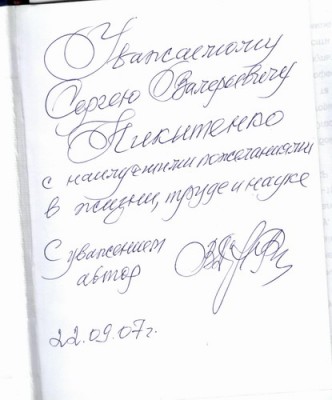 Уважаемому
Сергею Валерьевичу
Никитенко
с наилучшими пожеланиями
в жизни, труде и науке
С уважением
автор
22.09.07г.